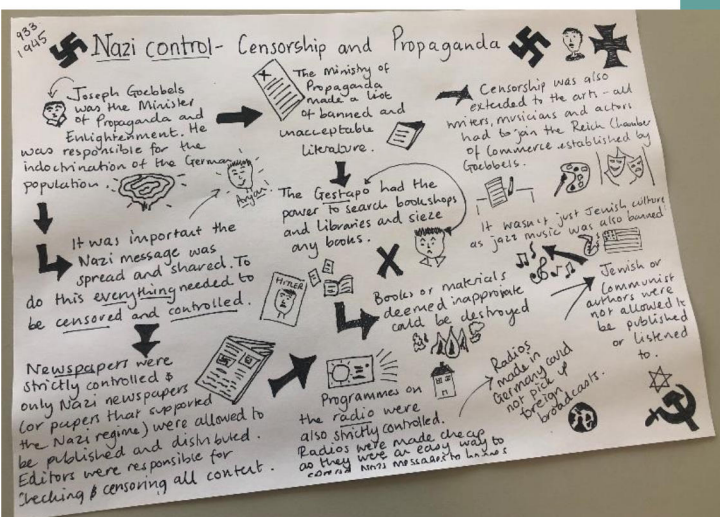 933
1945
Nazi control - Censorship and Propaganda
Joseph Goebbels
was the Minister
of Propaganda and
Enlightenment. He
was responsible for the
indoctrination of the German
population.
Aryan
It was important the
Nazi message was
spread and shared. To
do this everything needed to
be censored and controlled.
Newspapers were
strictly controlled &
only Nazi newspapers
(or papers that supported
the Nazi regime) were allowed to
be published and distributed.
Editors were responsible for
checking & censoring all content.
The Ministry of
Propaganda
made a list
of banned and
unacceptable
literature.
The Gestapo had the
power to search bookshops
and libraries and sieze
any books.
HITLER
Books or materials
deemed inappropriate
could be destroyed
Programmes on
the radio were
also strictly controlled.
Radios were made cheap
as they were an easy way to
spread Nazi messages to
Radios
made in
Germany could
not pick up
foreign
broadcasts.
Censorship was also
extended to the arts - all
writers, musicians and actors
had to join the Reich Chamber
of Commerce established by
Goebbels.
It wasn't just Jewish culture
as jazz music was also banned
Jewish or
Communist
authors were
not allowed to
be published
or listened
to.